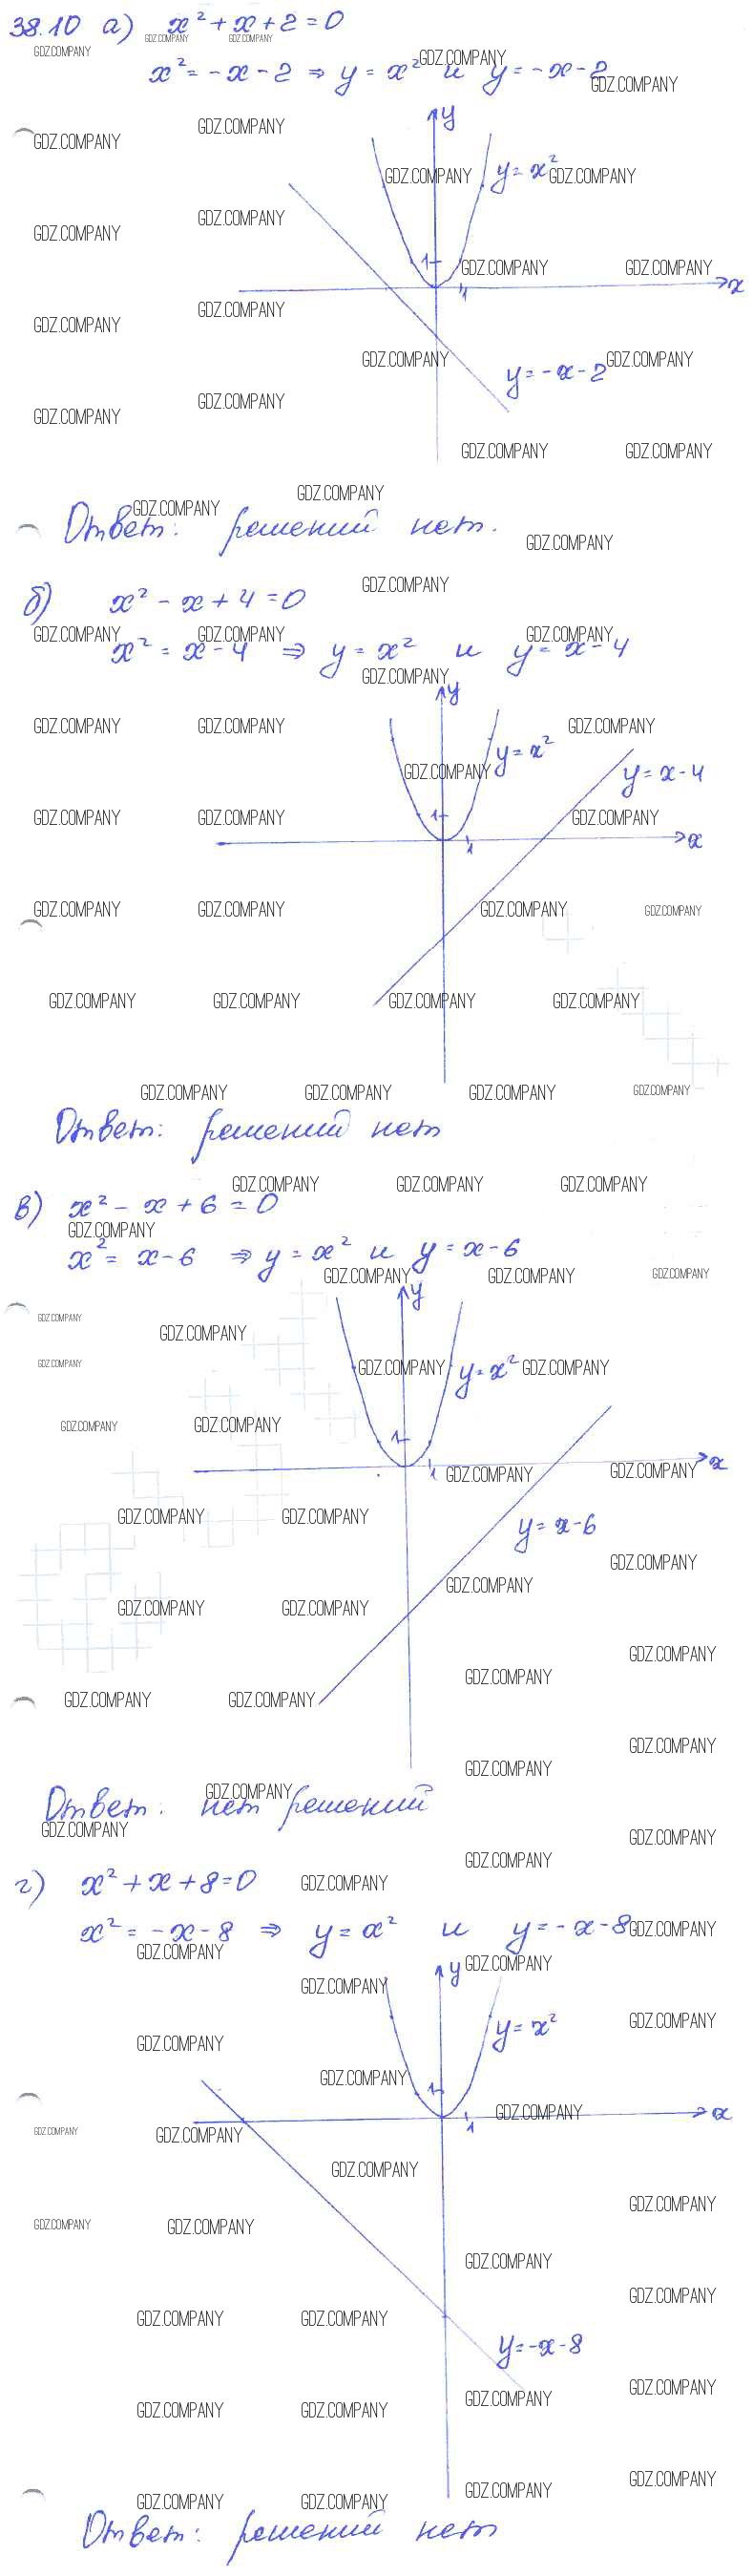 38.10 а) x² + x + 2 = 0
x² = -x - 2 ⇒ y = x² и y = -x - 2
y
y = x²
1
1
x
y = -x - 2
Ответ: решений нет.
б) x² - x + 4 = 0
x² = x - 4 ⇒ y = x² и y = x - 4
y
y = x²
y = x - 4
1
1
x
Ответ: решений нет
в) x² - x + 6 = 0
x² = x - 6 ⇒ y = x² и y = x - 6
y
y = x²
1
1
x
y = x - 6
Ответ: нет решений
г) x² + x + 8 = 0
x² = -x - 8 ⇒ y = x² и y = -x - 8
y
y = x²
1
1
x
y = -x - 8
Ответ: решений нет
GDZ.COMPANY